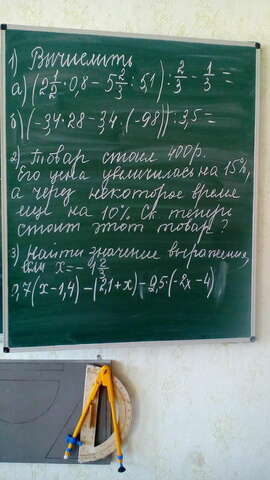 1) Вычислить
а) (2 1/2 · 0,8 - 5 2/3 : 5,1) · 2/3 - 1/3 =
б) (-34 · 28 - 34 · (-98)) : 3,5 =
2) Товар стоил 400р.
Его цена увеличилась на 15%,
а через некоторое время
еще на 10%. Ск. теперь
стоит этот товар?
3) Найти значение выражения,
если x = -1 2/3
0,7(x-1,4) - (2,1+x) - 2,5·(-2x-4)